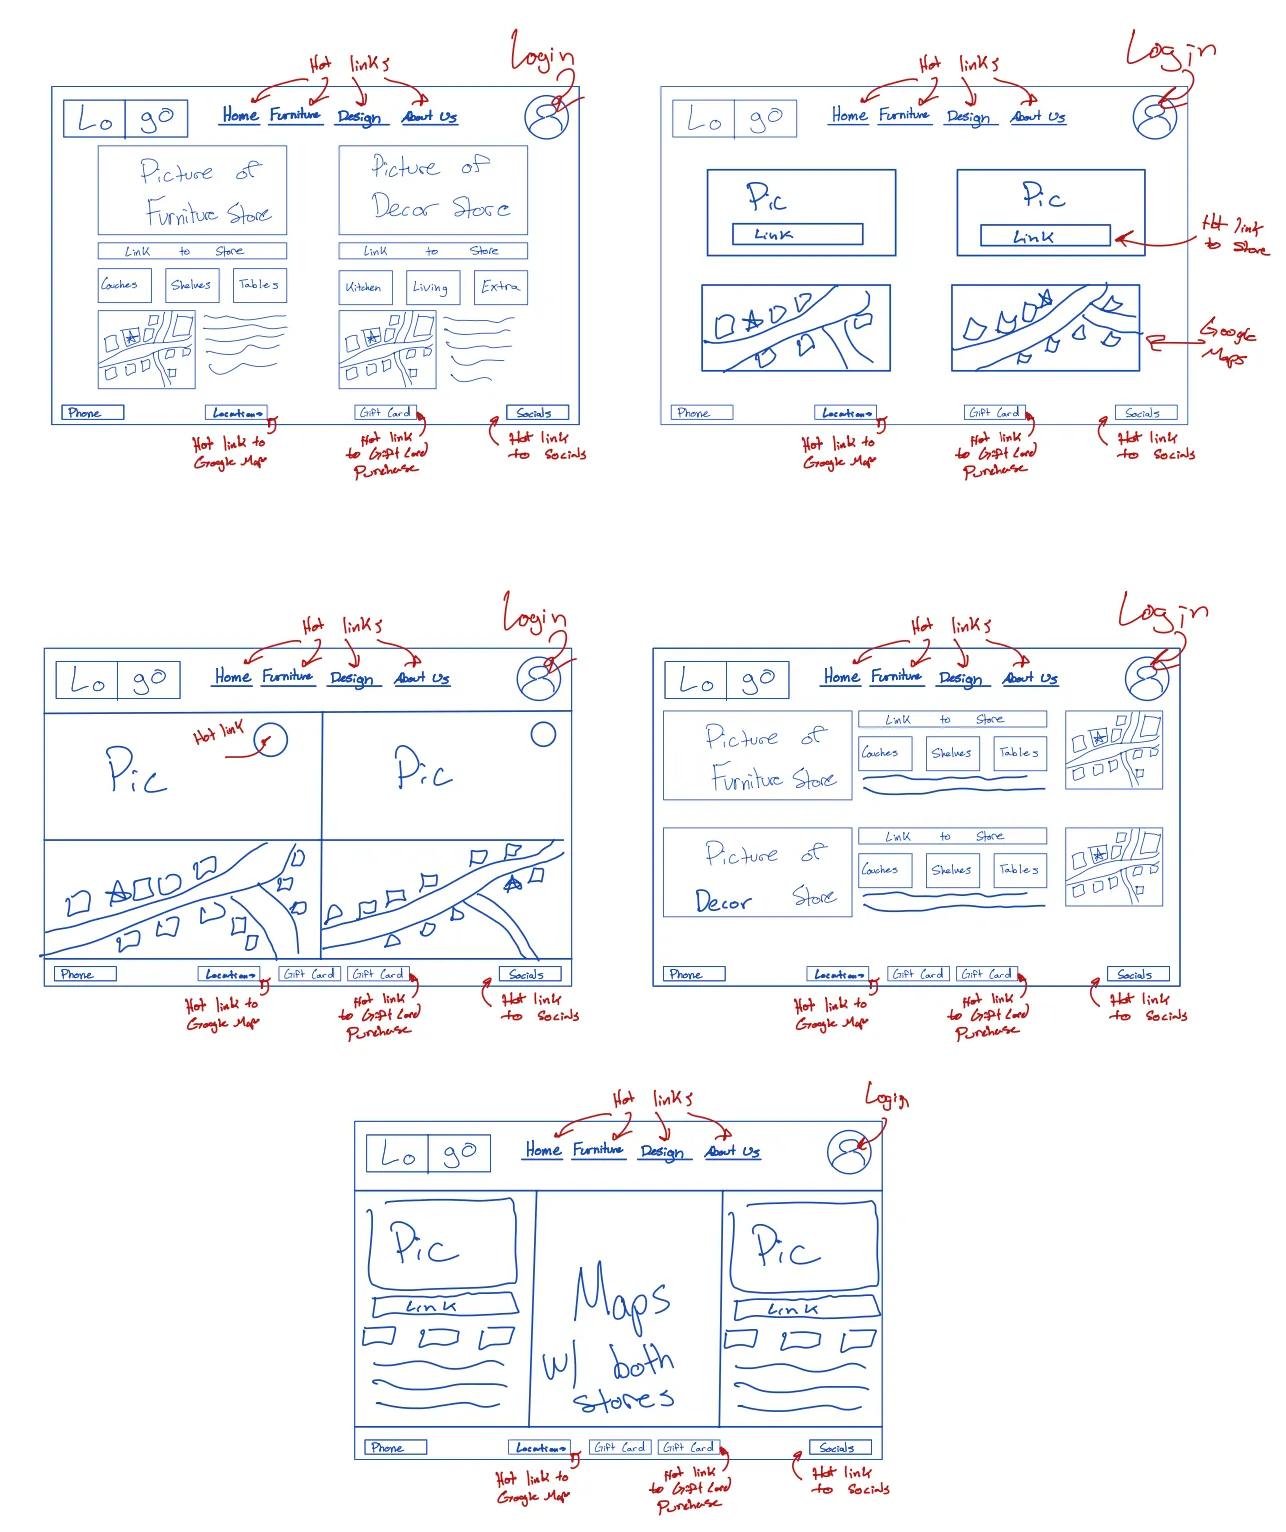 Login
Hot links
Lo go
Home Furniture Design About Us
Picture of
Furniture Store
Picture of
Decor Store
Link to Store
Link to Store
Couches Shelves Tables
Kitchen Living Extra
Phone
Locations
Gift Card
Socials
Hot link to
Google Maps
Hot link
to Gift Card
Purchase
Hot link
to Socials
Login
Hot links
Lo go
Home Furniture Design About Us
Pic
Link
Pic
Link
Hot link
to Store
Google
Maps
Phone
Locations
Gift Card
Socials
Hot link to
Google Maps
Hot link
to Gift Card
Purchase
Hot link
to Socials
Login
Hot links
Lo go
Home Furniture Design About Us
Hot link
Pic
Pic
Phone
Locations
Gift Card
Gift Card
Socials
Hot link to
Google Maps
Hot link
to Gift Card
Purchase
Hot link
to Socials
Login
Hot links
Lo go
Home Furniture Design About Us
Picture of
Furniture Store
Link to Store
Couches Shelves Tables
Picture of
Decor Store
Link to Store
Couches Shelves Tables
Phone
Locations
Gift Card
Gift Card
Socials
Hot link to
Google Maps
Hot link
to Gift Card
Purchase
Hot link
to Socials
Login
Hot links
Lo go
Home Furniture Design About Us
Pic
Link
Maps
w/ both
stores
Pic
Link
Phone
Locations
Gift Card
Gift Card
Socials
Hot link to
Google Maps
Hot link
to Gift Card
Purchase
Hot link
to Socials